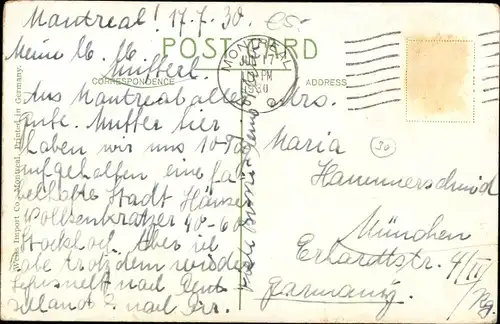 Montreal! 17.7.30.
Meine lb. lb.
Mutterl.
POST CARD
CORRESPONDENCE
ADDRESS
MONTREAL
JUL 17
PM
1930
Aus Montreal alles
gute. Mutter hier
haben wir uns 10 Tg
aufgehalten eine fa
belhafte Stadt Häuser
Wolkenkratzer 40-60
Stock hoch. Aber ich
habe trotzdem wieder
Sehnsucht nach
nach
Mrs.
Maria
Hammerschmid
München
Erhardtstr. 4/IV
Germany.
Import Co., Montreal. Printed in Germany.